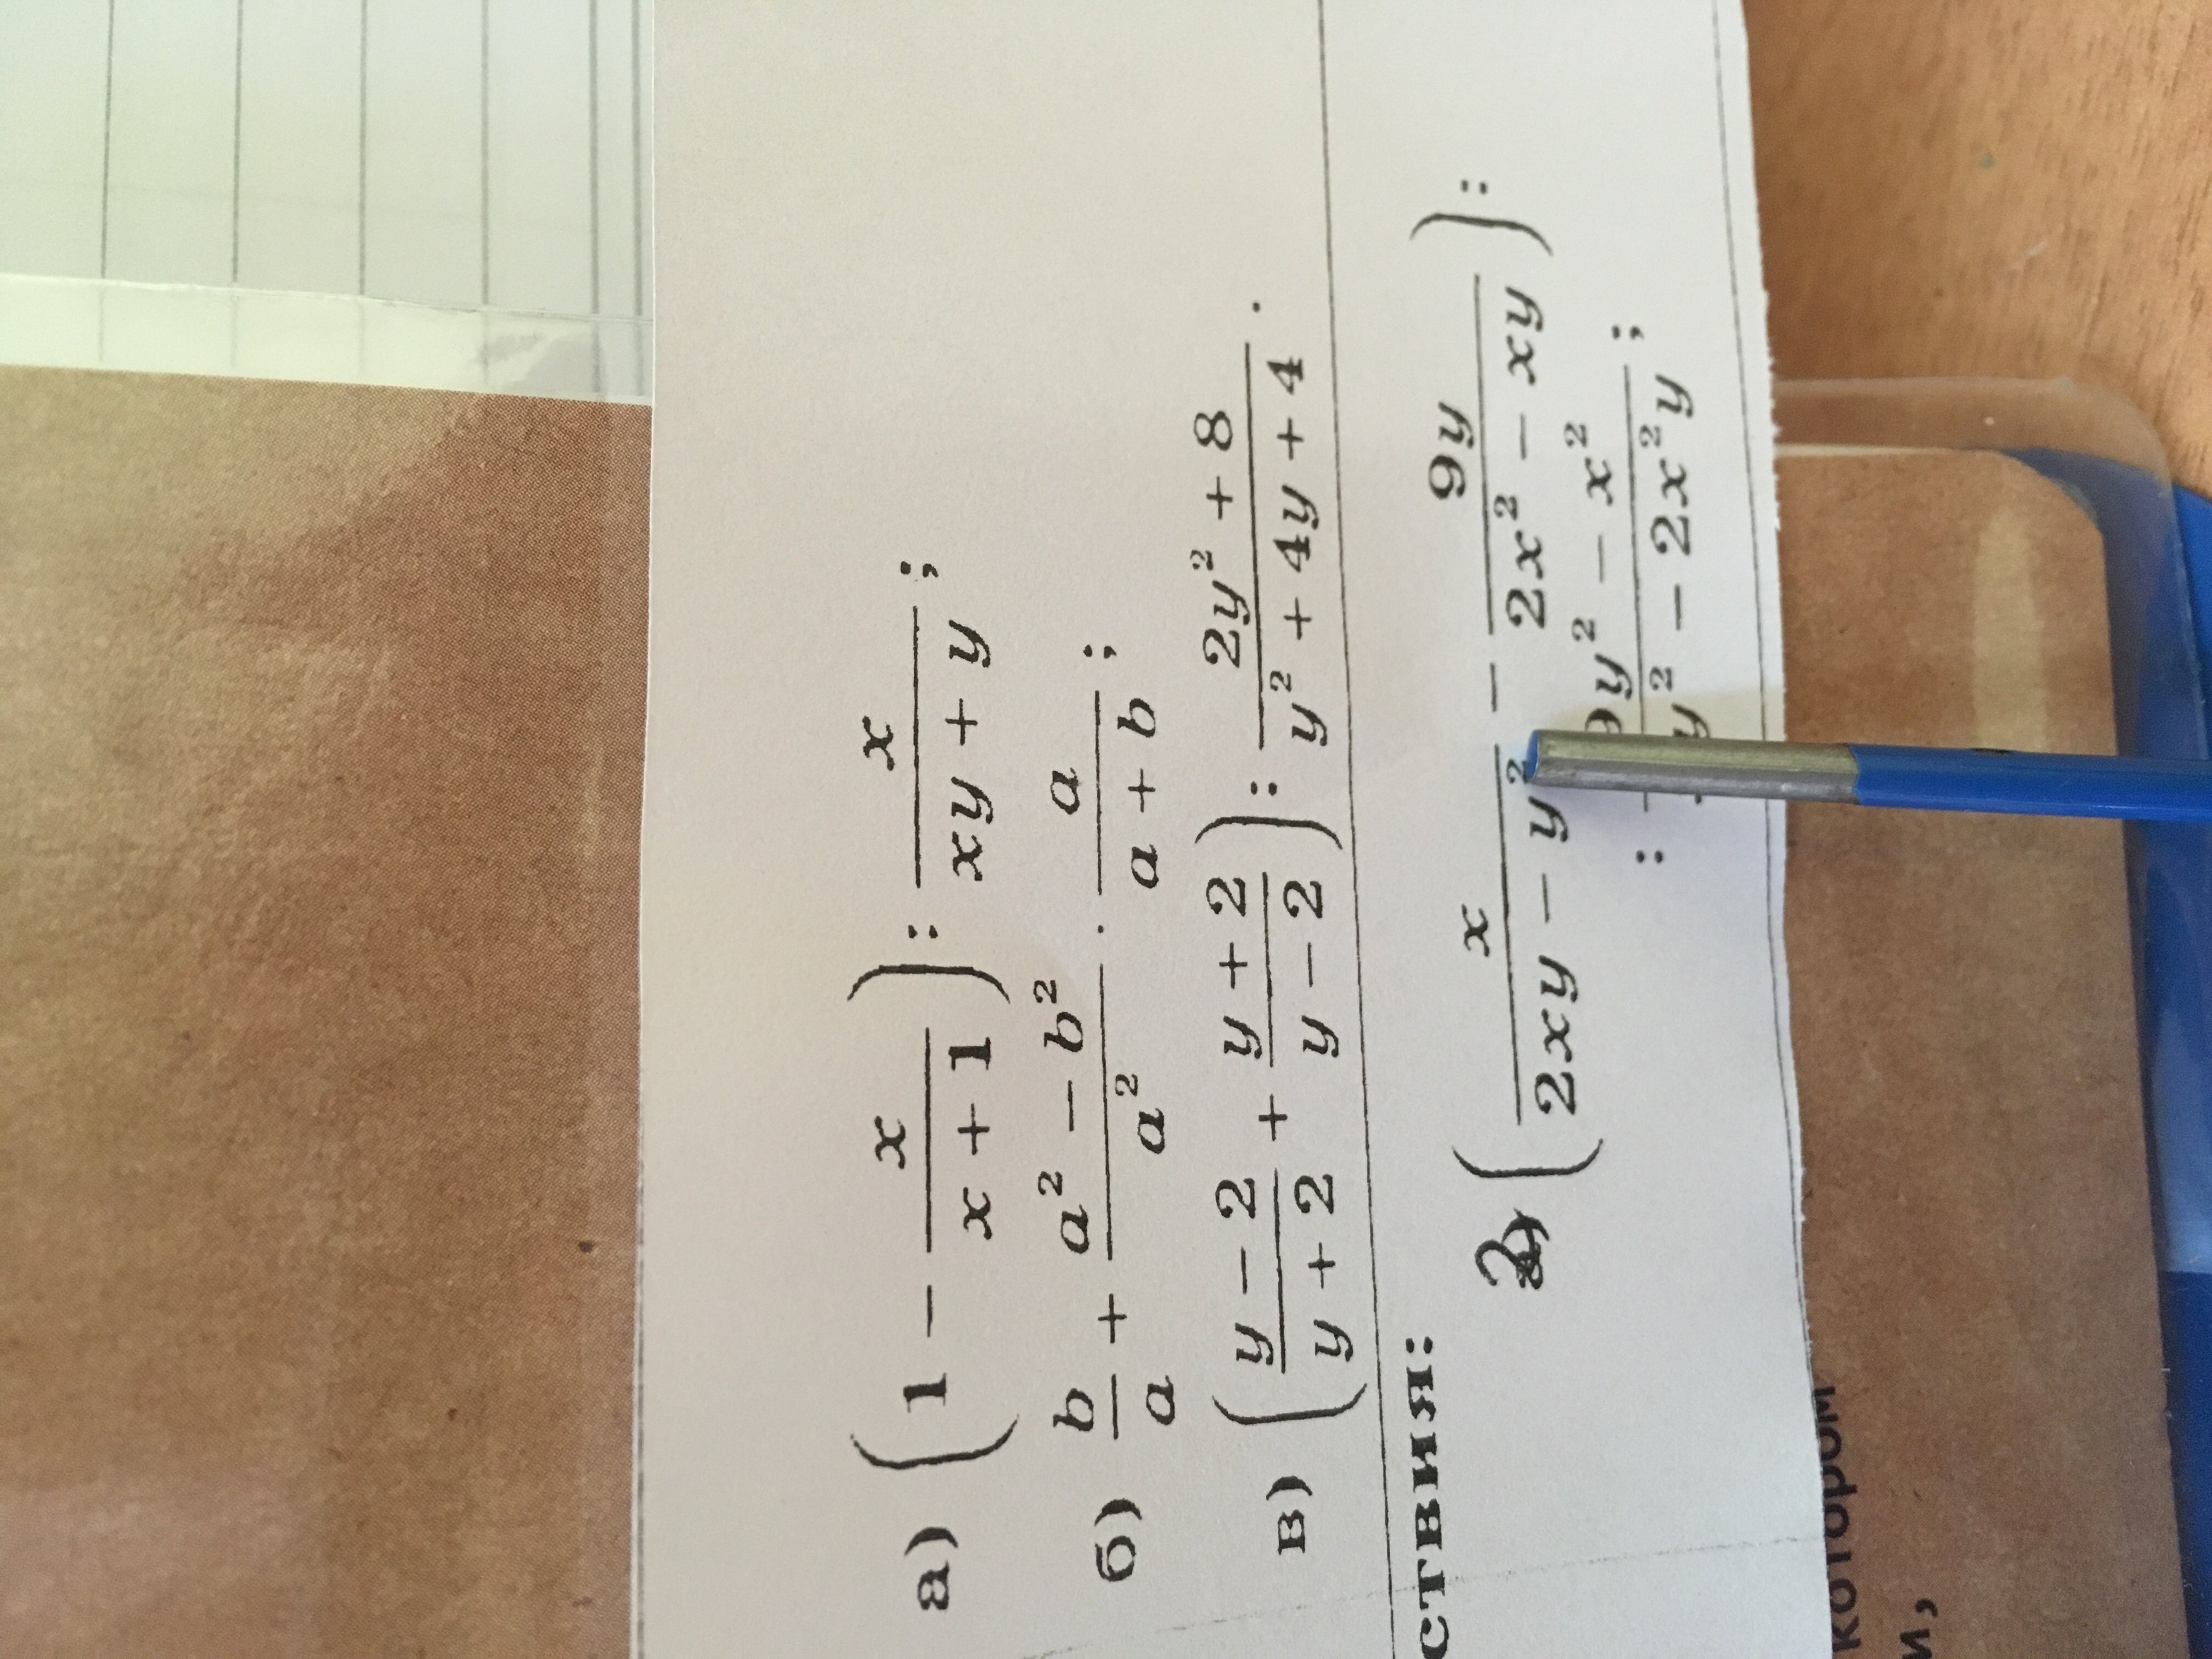 а) (1 − x/(x + 1)) : x/(xy + y);
б) b/a + (a² − b²)/a² · a/(a + b);
в) ((y − 2)/(y + 2) + (y + 2)/(y − 2)) : (2y² + 8)/(y² + 4y + 4).
ствия:
(x/(2xy − y²) − 9y/(2x² − xy)) :
y² − x²
y² − 2x²y ;
котором
и,